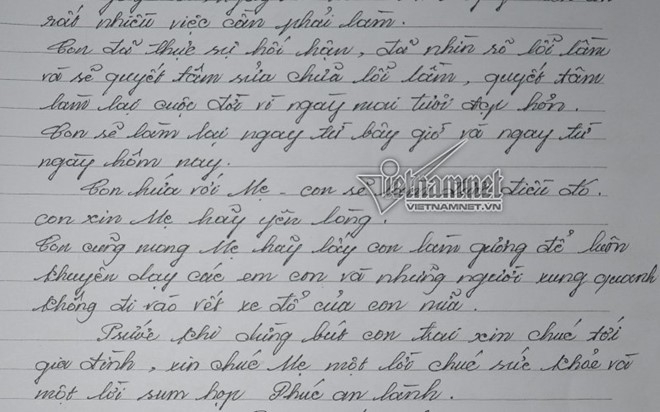 rất nhiều việc cần phải làm.
Con đã thực sự hối hận, đã nhìn rõ lỗi lầm
và sẽ quyết tâm sửa chữa lỗi lầm, quyết tâm
làm lại cuộc đời vì ngày mai tươi đẹp hơn.
Con sẽ làm lại ngay từ bây giờ và ngay từ
ngày hôm nay.
Con hứa với Mẹ - con sẽ điều đó.
con xin Mẹ hãy yên lòng.
Con cũng mong Mẹ hãy lấy con làm gương để luôn
khuyên dạy các em con và những người xung quanh
không đi vào vết xe đổ của con nữa.
Trước khi dừng bút con trai xin chúc tới
gia đình, xin chúc Mẹ một lời chúc sức khỏe và
một lời sum họp Phúc an lành.
vietnamnet
VIETNAMNET.VN